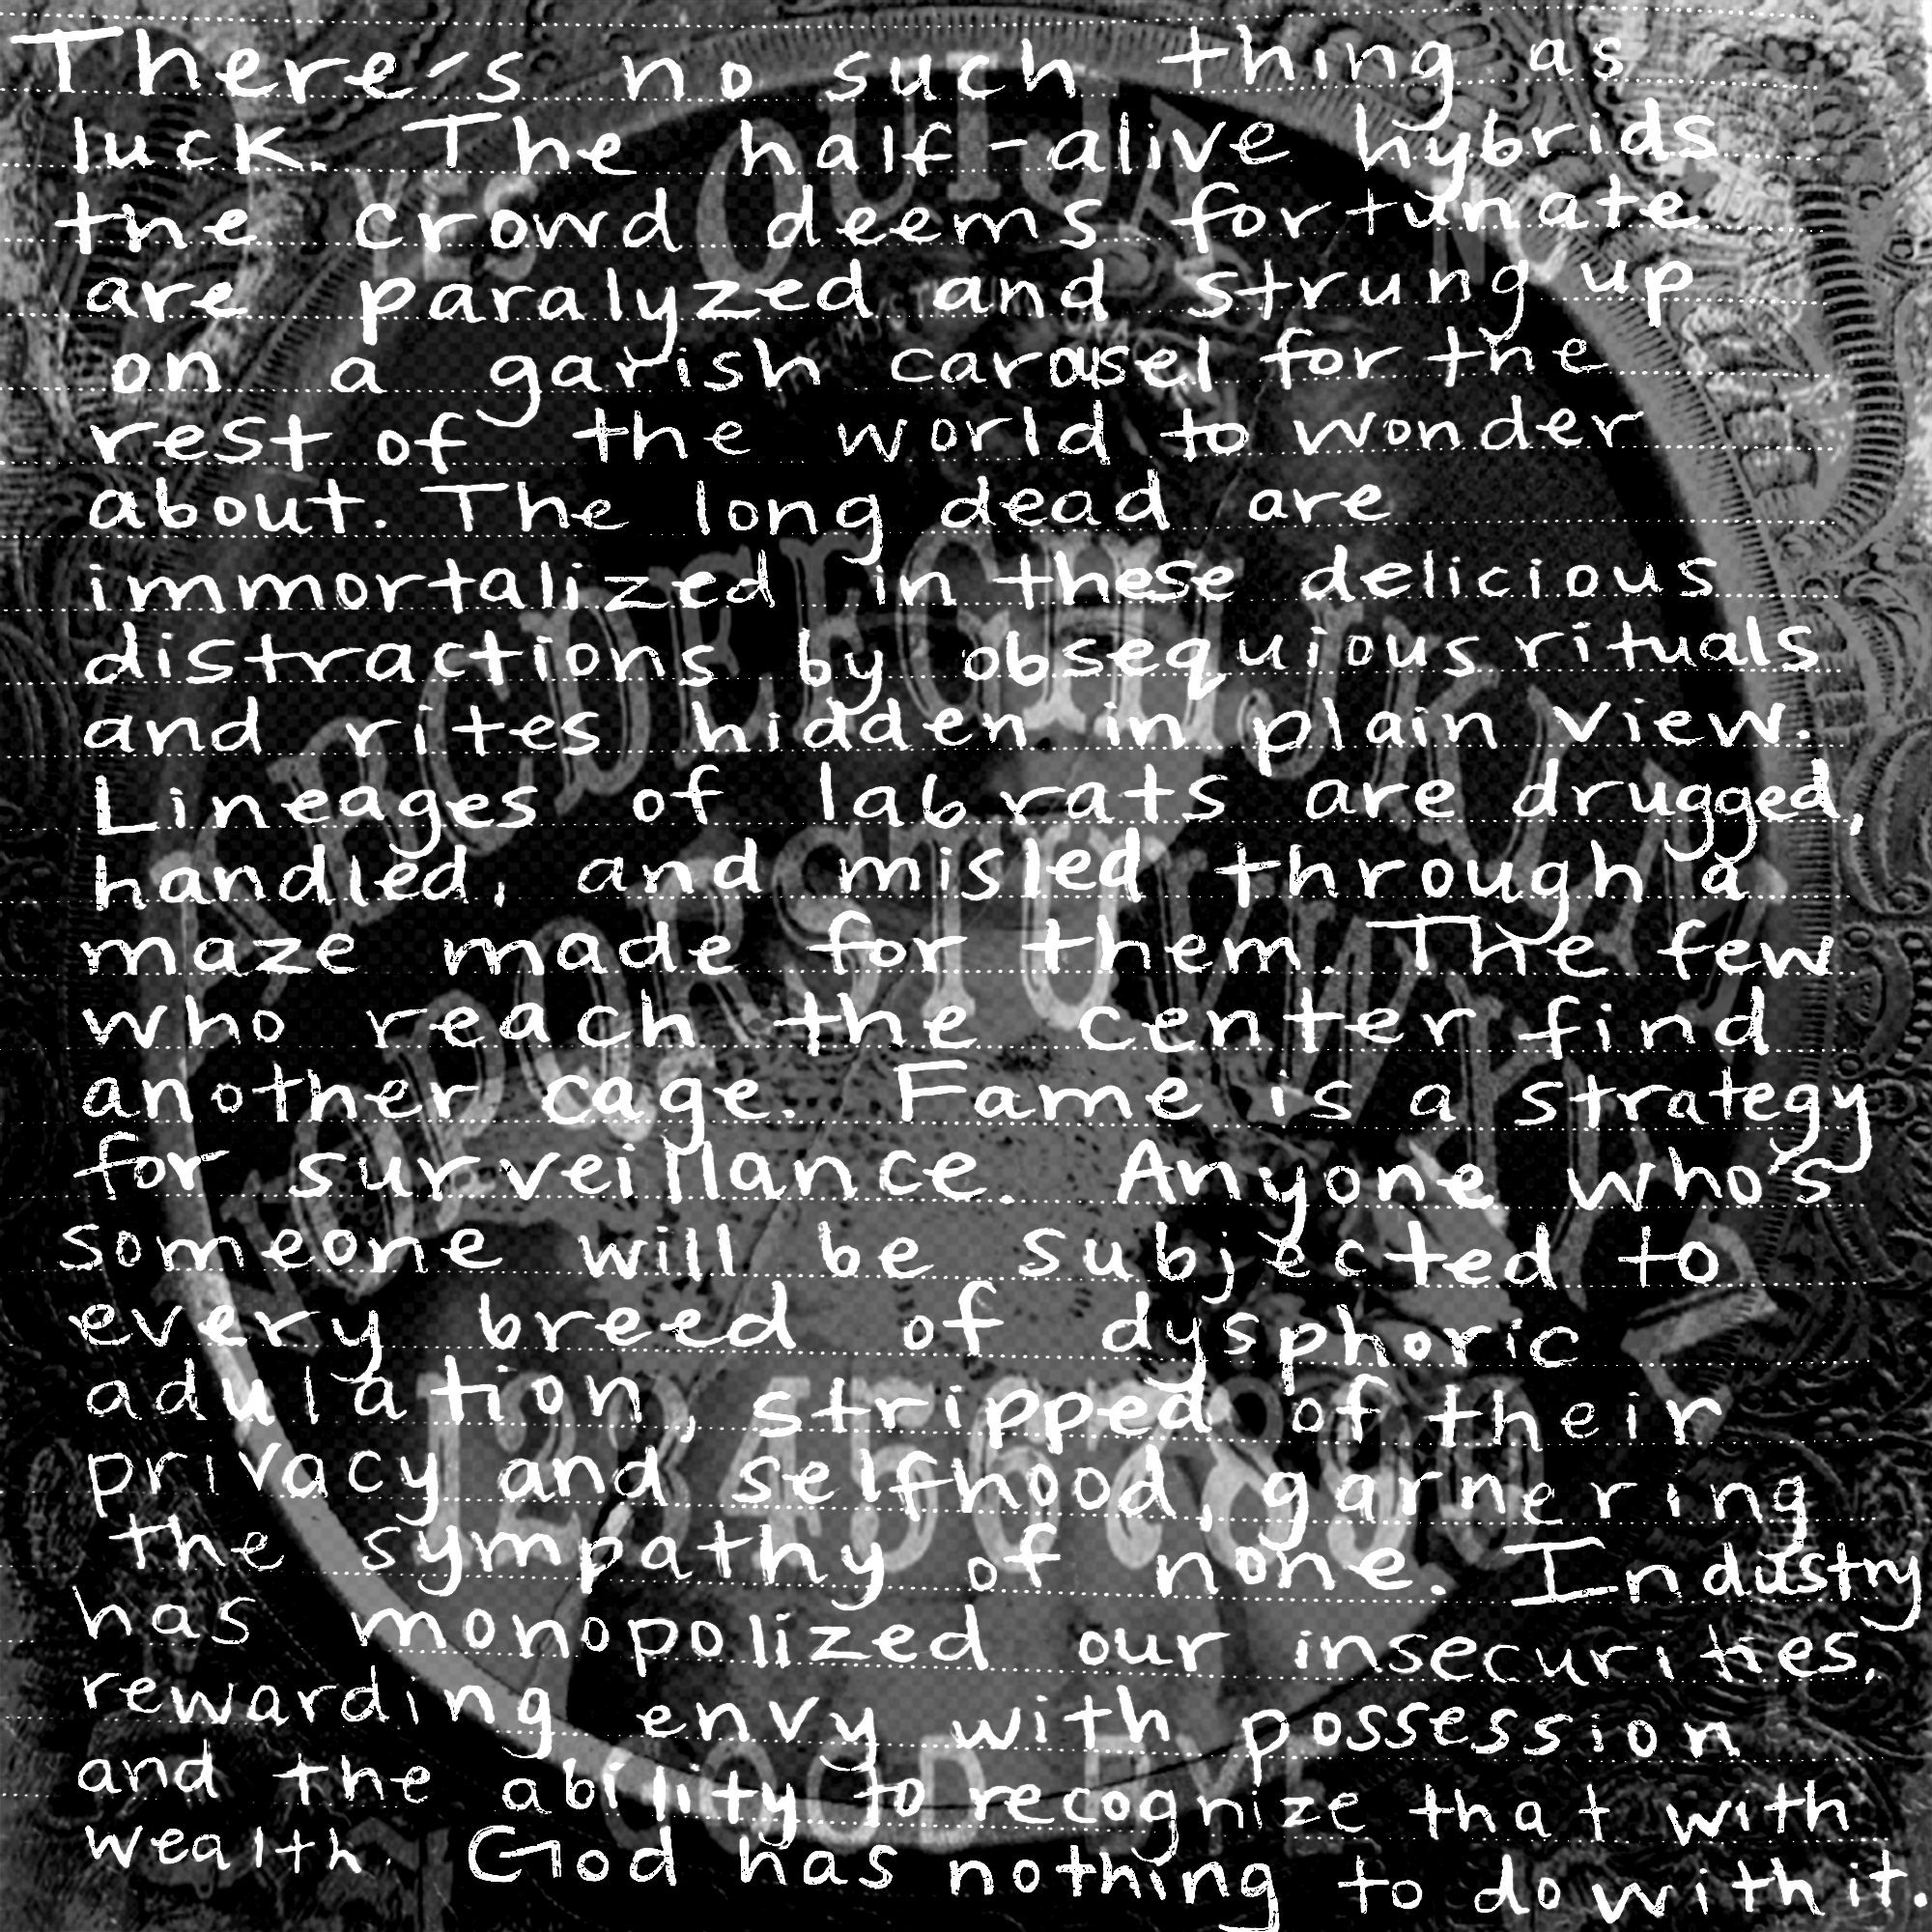 There's no such thing as
luck. The half-alive hybrids
the crowd deems fortunate
are paralyzed and strung up
on a garish carousel for the
rest of the world to wonder
about. The long dead are
immortalized in these delicious
distractions by obsequious rituals
and rites hidden in plain view.
Lineages of lab rats are drugged,
handled, and misled through a
maze made for them. The few
who reach the center find
another cage. Fame is a strategy
for surveillance. Anyone who's
someone will be subjected to
every breed of dysphoric
adulation, stripped of their
privacy and selfhood, garnering
the sympathy of none. Industry
has monopolized our insecurities,
rewarding envy with possession
and the ability to recognize that with
wealth. God has nothing to do with it.
YES OUIJA
ABCDEFGHIJKLM
NOPQRSTUVWXYZ
1234567890
GOOD BYE